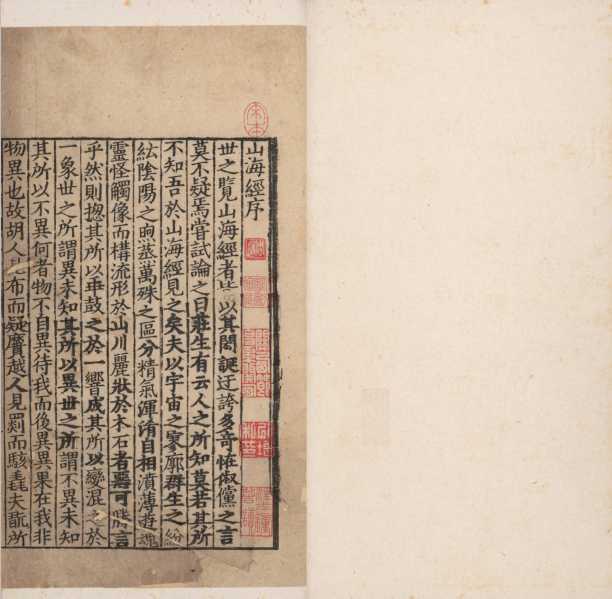 山海經序
世之覽山海經者皆以其閎誕迂誇多奇怪俶儻之言
莫不疑焉嘗試論之曰莊生有云人之所知莫若其所
不知吾於山海經見之矣夫以宇宙之寥廓群生之紛
紜陰陽之呴蒸萬殊之區分精氣渾淆自相濆薄遊魂
靈怪觸像而構流形於山川麗狀於木石者惡可勝言
乎然則揔其所以乖鼓之於一響成其所以變混之於
一象世之所謂異未知其所以異世之所謂不異未知
其所以不異何者物不自異待我而後異異果在我非
物異也故胡人見布而疑黂越人見罽而駭毳夫翫所